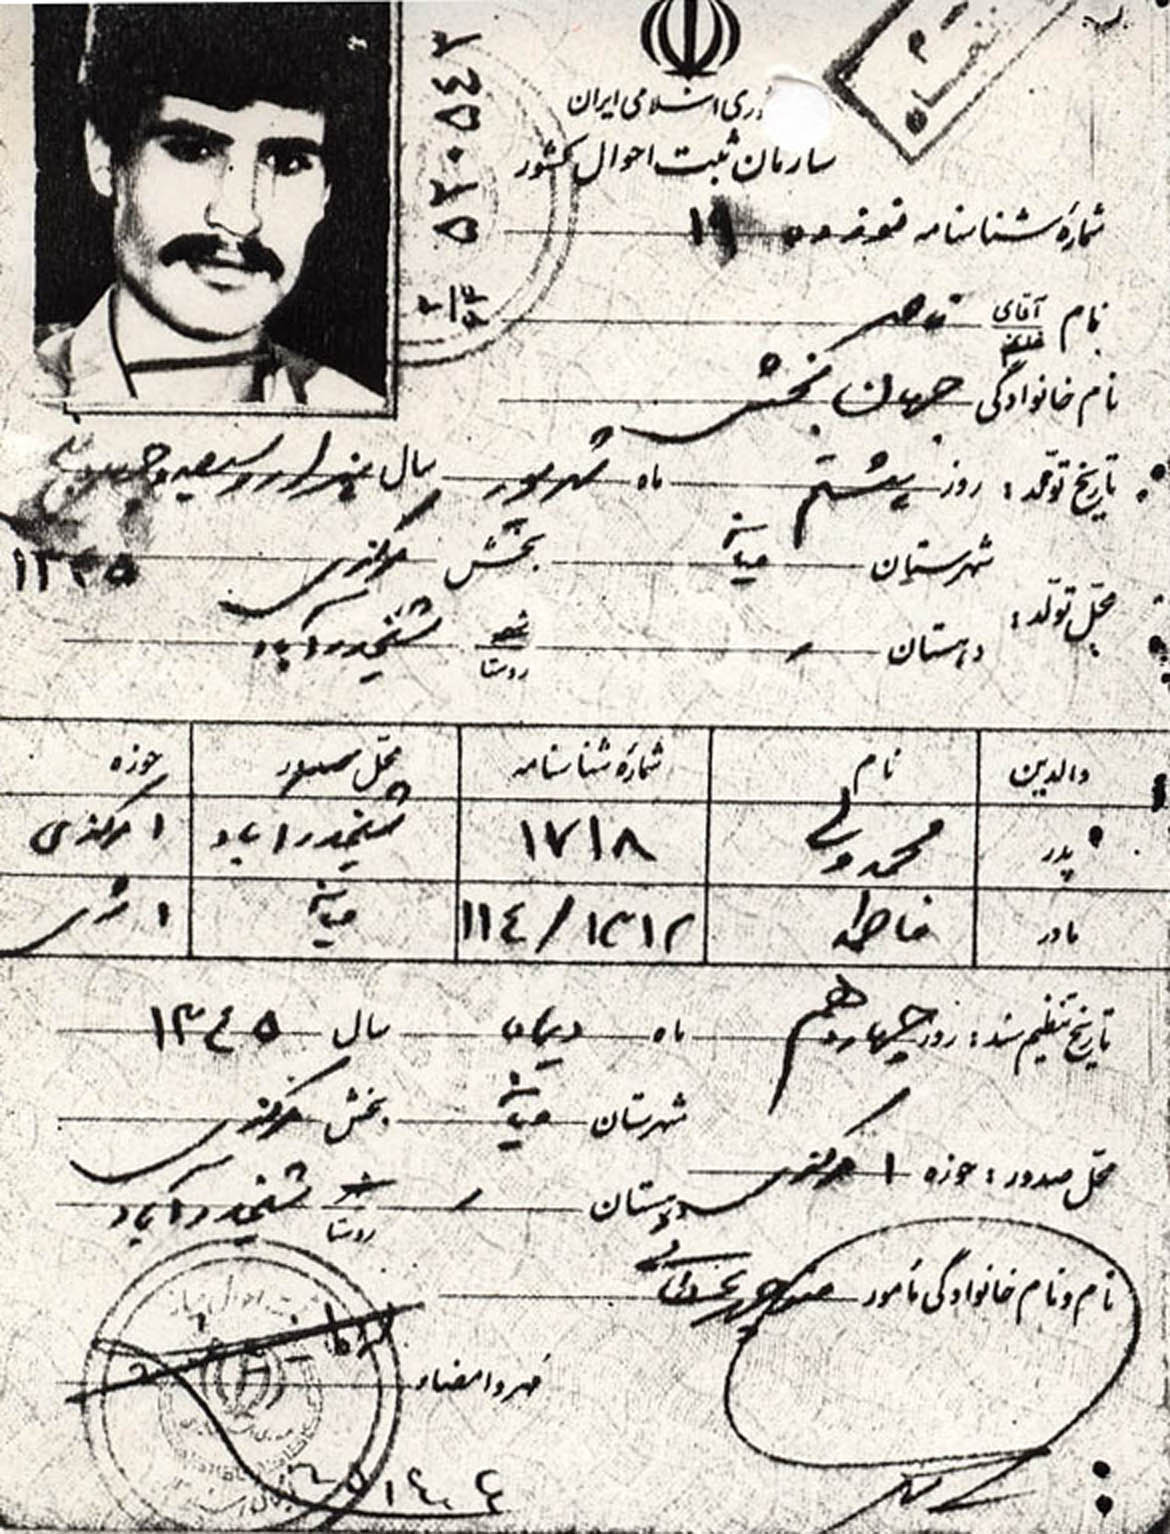 جمهوری اسلامی ایران
سازمان ثبت احوال کشور
۵۲۰۵۴۲
شمارهٔ شناسنامه ۱۹
نام آقای خانم قاهر
نام خانوادگی جهان بخش
تاریخ تولّد: روز بیستم ماه شهریور سال هزار و سیصد و چهل و پنج
۱۳۴۵
محلّ تولّد: شهرستان میانه بخش مرکزی
دهستان - شهر روستا شیخدرآباد
والدین نام شمارهٔ شناسنامه محلّ صدور حوزه
پدر محمدولی ۱۷۱۸ شیخدرآباد ۱ مرکزی
مادر فاطمه ۱۱۴/۱۳۱۲ میانه ۱
تاریخ تنظیم سند: روز چهاردهم ماه سال ۱۳۴۵
شهرستان میانه بخش مرکزی
محلّ صدور: حوزه ۱ مرکزی
دهستان - شهر روستا شیخدرآباد
نام و نام خانوادگی مأمور
مهر و امضاء